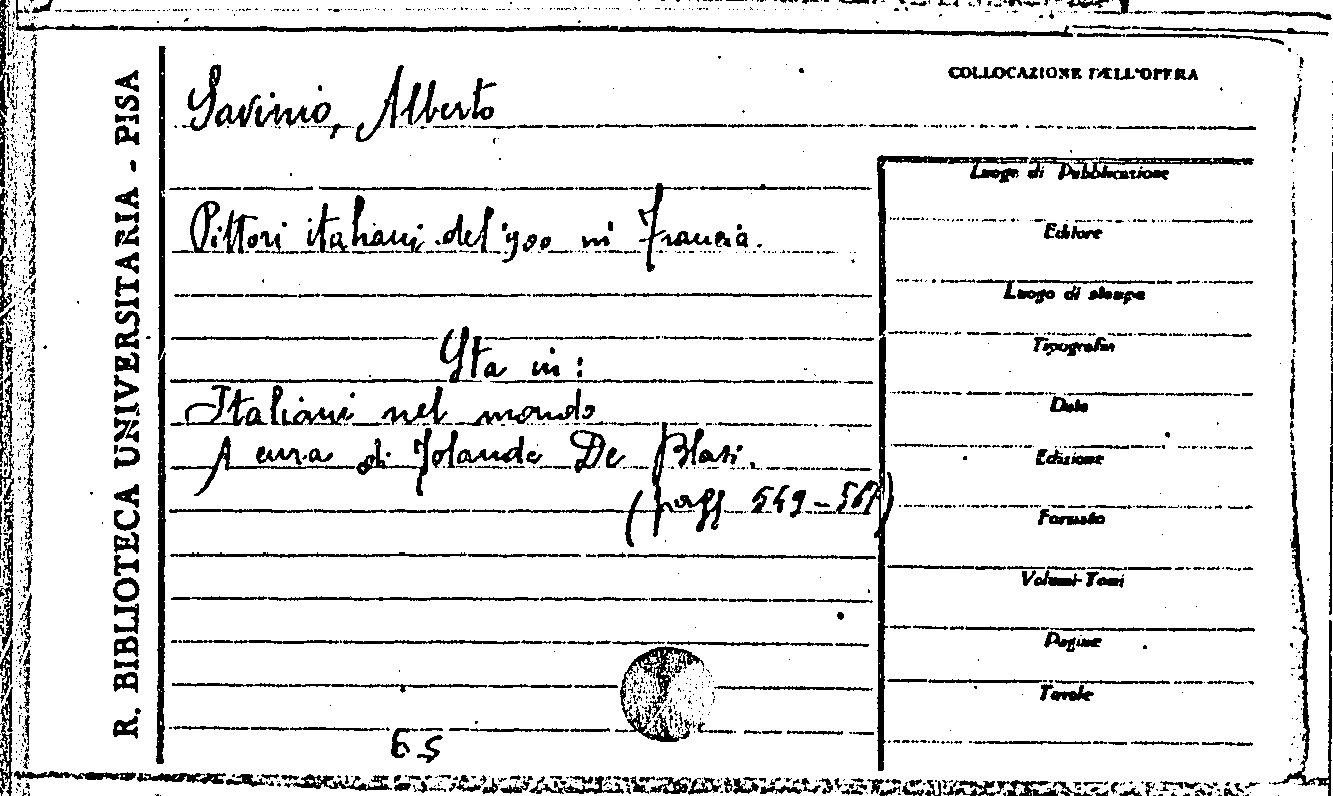 R. BIBLIOTECA UNIVERSITARIA - PISA
COLLOCAZIONE DELL'OPERA
Savinio, Alberto
Pittori italiani del '900 in Francia.
Sta in:
Italiani nel mondo
A cura di Jolanda De Blasi.
(pagg 549-561)
Luogo di Pubblicazione
Editore
Luogo di stampa
Tipografia
Data
Edizione
Formato
Volumi-Tomi
Pagine
Tavole